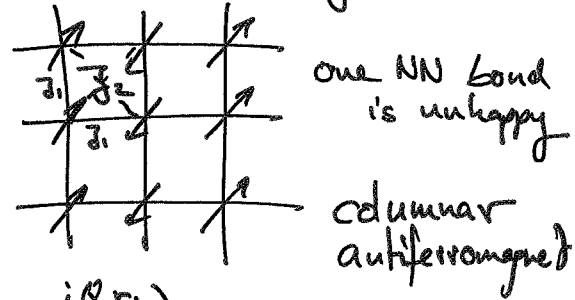 J₁
J₂
J₁
one NN bond
is unhappy
columnar
antiferromagnet